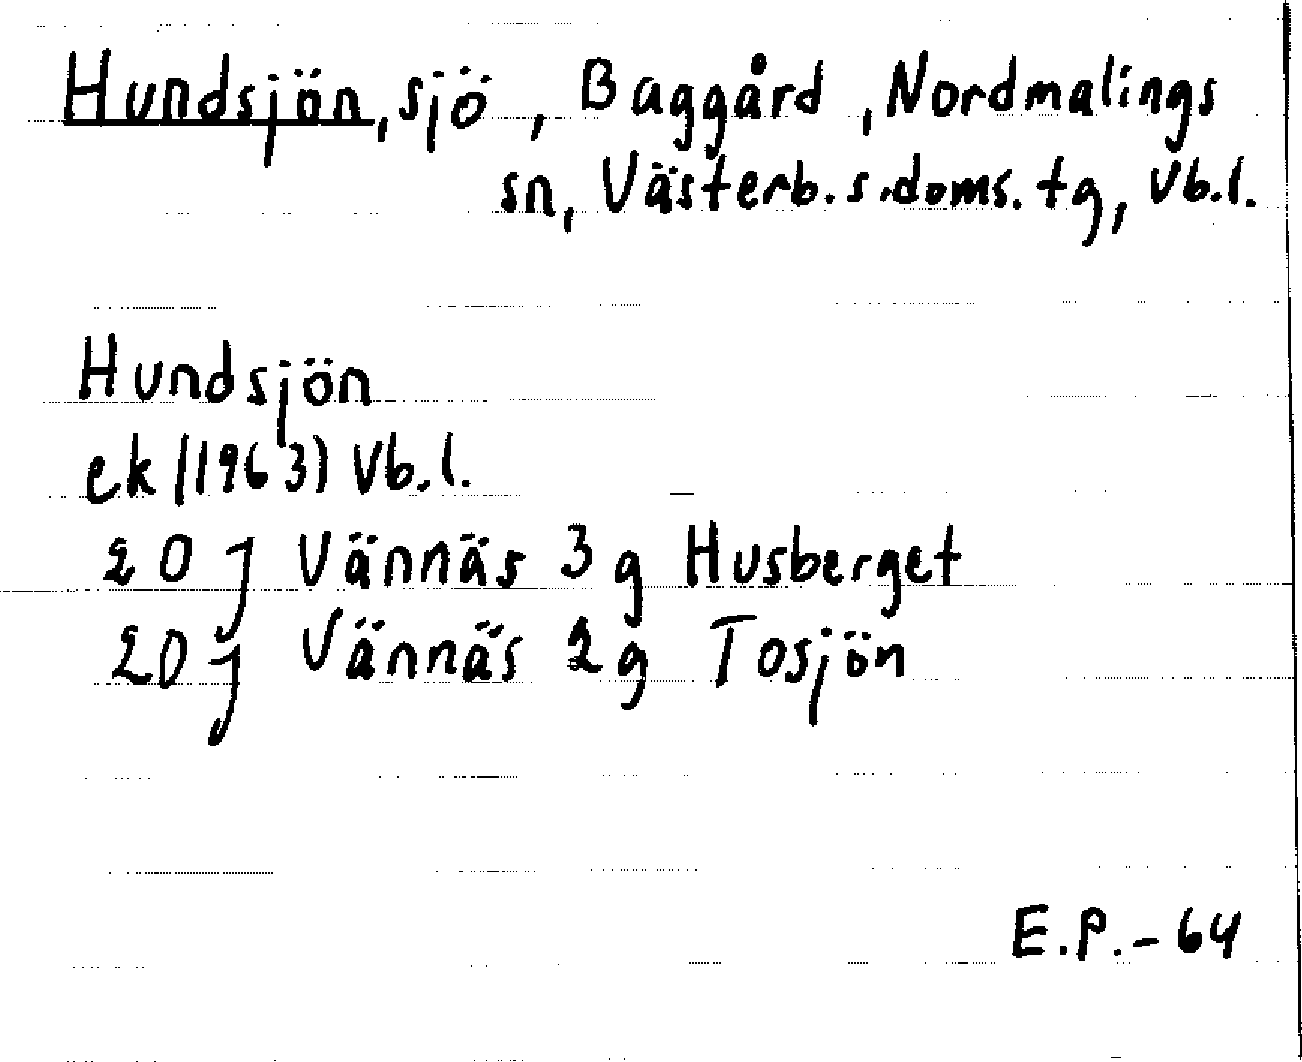 Hundsjön, sjö, Baggård, Nordmalings
sn, Västerb. s. doms. tg, Vb.l.
Hundsjön
ek (1963) Vb.l.
20 J Vännäs 3 g Husberget
20 J Vännäs 2 g Tosjön
E.P.-64